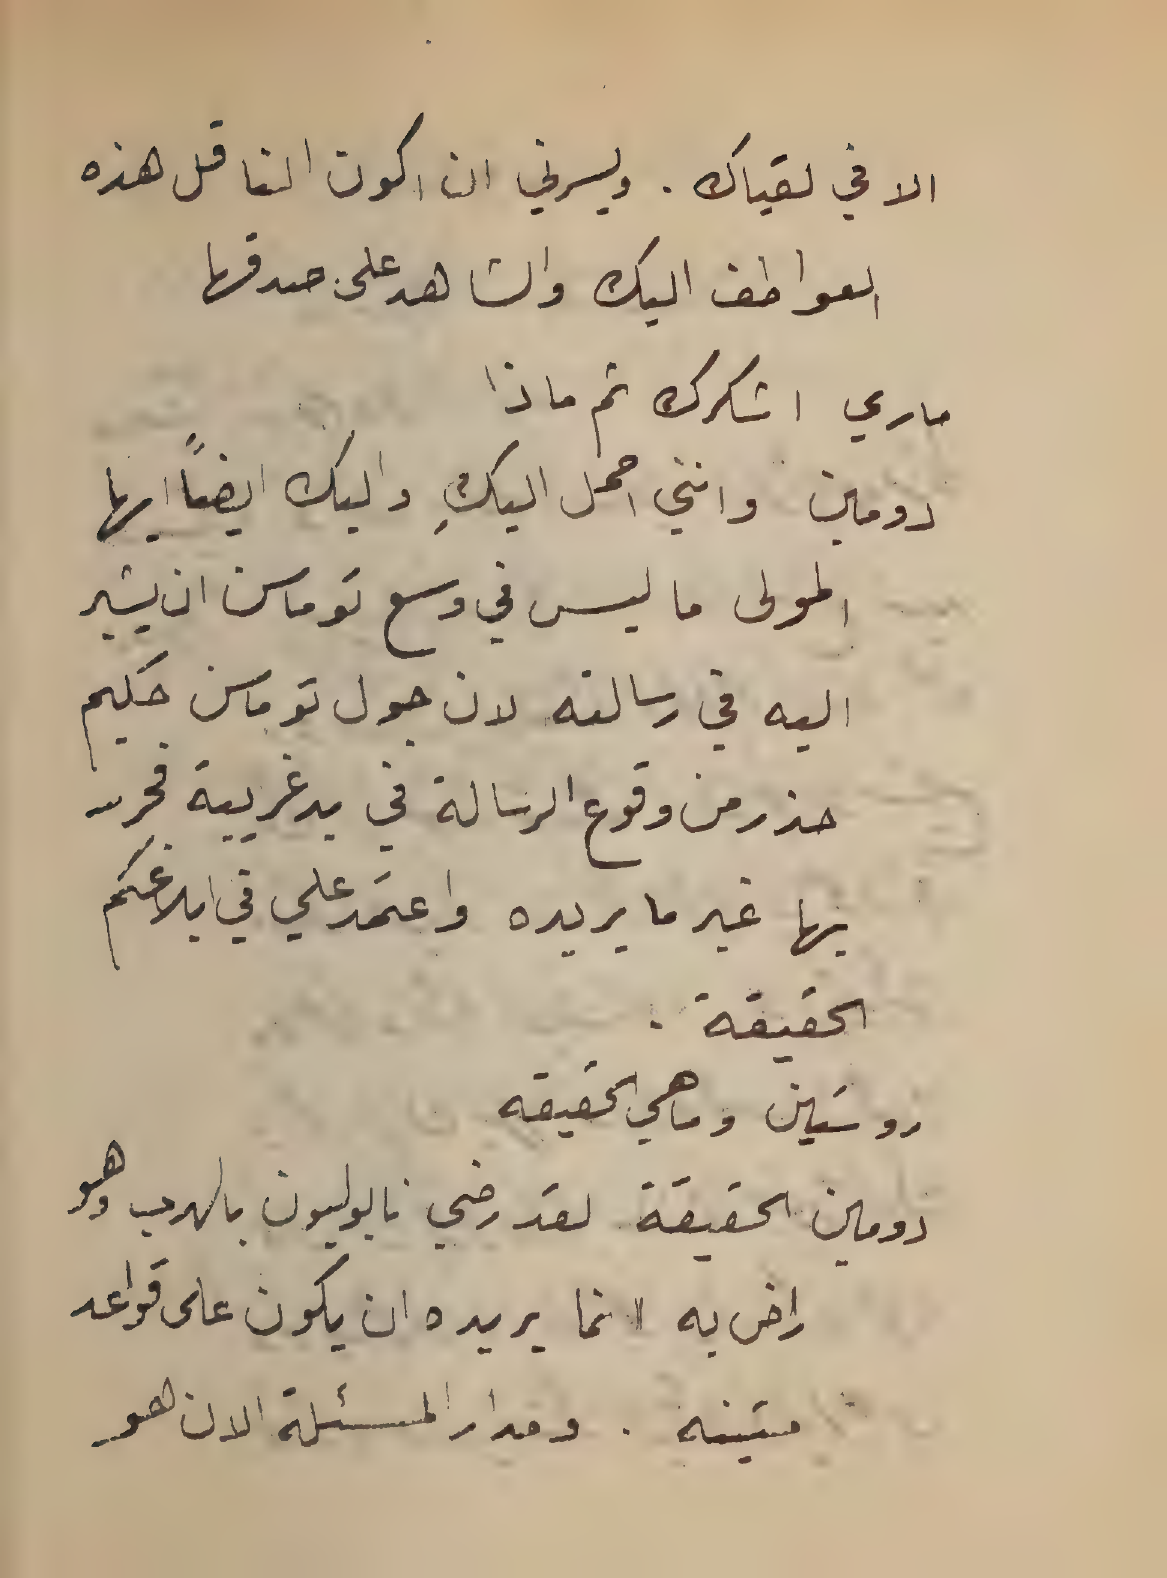 الا في لقياك . ويسرني ان اكون الناقل هذه
العواطف اليك والشاهد على صدقها
ماري اشكرك ثم ماذا
دومين وانني احمل اليكِ واليك ايضاً ايها
المولى ما ليس في وسع توماسن ان يشير
اليه في رسالته لان جول توماسن حكيم
حذر من وقوع الرسالة في يد غريبة فحرر
بها غير ما يريده واعتمد علي في ابلاغكم
الحقيقة .
روستين وما هي الحقيقه
دومين الحقيقة لقد رضي نابوليون بالهرب وهو
راض به انما يريده ان يكون على قواعد
متينه . ومدار المسئلة الان هو